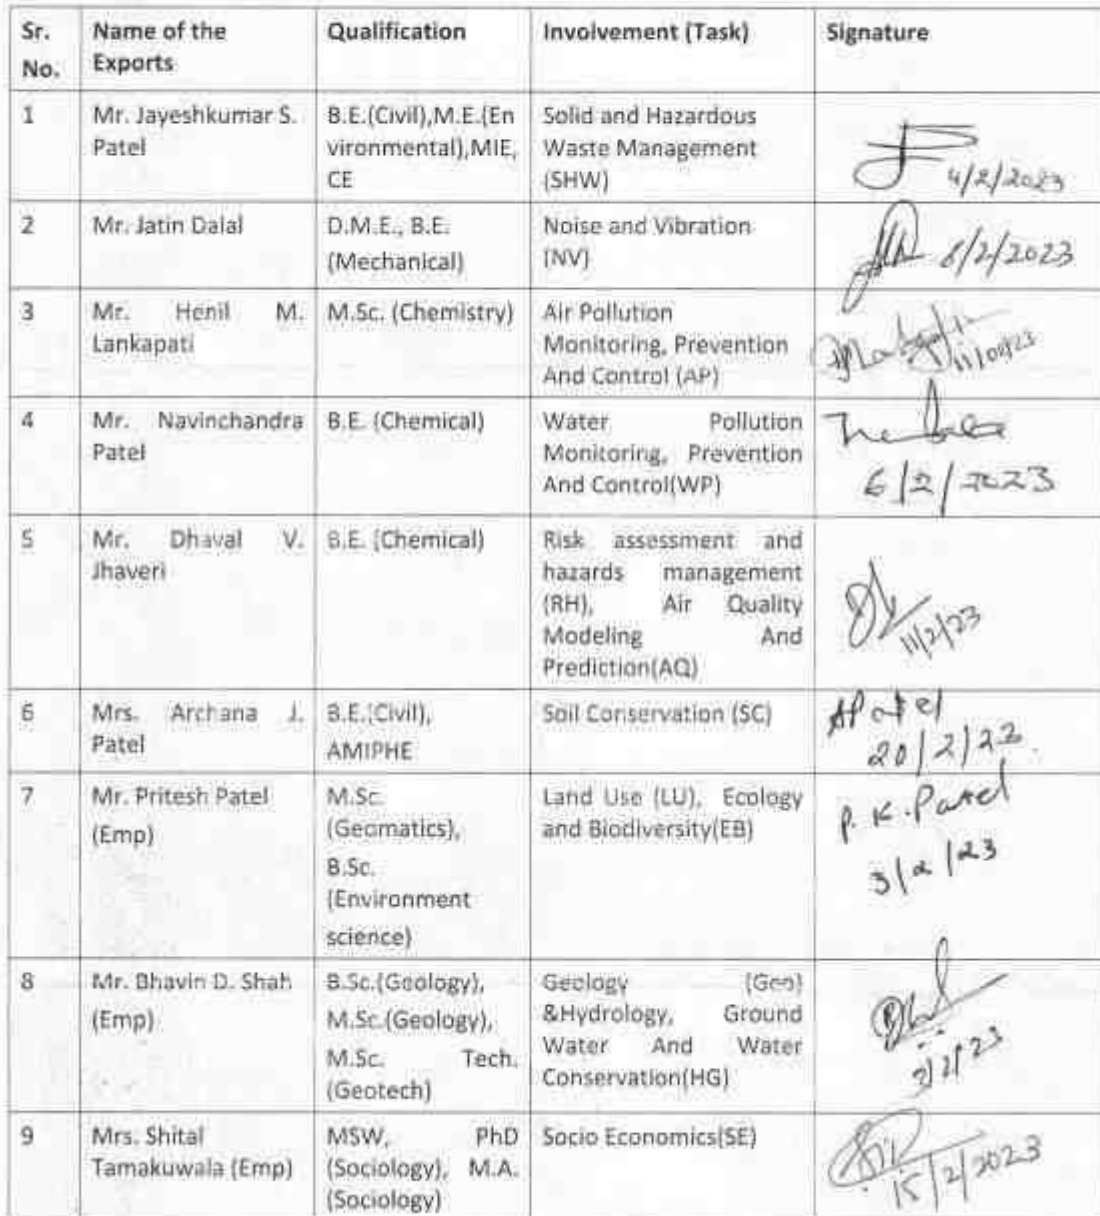 Sr. No.
Name of the Exports
Qualification
Involvement (Task)
Signature
1
Mr. Jayeshkumar S.
Patel
B.E.(Civil),M.E.(En
vironmental),MIE,
CE
Solid and Hazardous
Waste Management
(SHW)
4/2/2023
2
Mr. Jatin Dalal
D.M.E., B.E.
(Mechanical)
Noise and Vibration
(NV)
6/2/2023
3
Mr. Henil M.
Lankapati
M.Sc. (Chemistry)
Air Pollution
Monitoring, Prevention
And Control (AP)
11/02/23
4
Mr. Navinchandra
Patel
B.E. (Chemical)
Water Pollution
Monitoring, Prevention
And Control(WP)
6/2/2023
5
Mr. Dhaval V.
Jhaveri
B.E. (Chemical)
Risk assessment and
hazards management
(RH), Air Quality
Modeling And
Prediction(AQ)
11/2/23
6
Mrs. Archana J.
Patel
B.E.(Civil),
AMIPHE
Soil Conservation (SC)
APatel
20/2/23
7
Mr. Pritesh Patel
(Emp)
M.Sc.
(Geomatics),
B.Sc.
(Environment
science)
Land Use (LU), Ecology
and Biodiversity(EB)
P. K. Patel
3/2/23
8
Mr. Bhavin D. Shah
(Emp)
B.Sc.(Geology),
M.Sc.(Geology),
M.Sc. Tech.
(Geotech)
Geology (Geo)
&Hydrology, Ground
Water And Water
Conservation(HG)
9
Mrs. Shital
Tamakuwala (Emp)
MSW, PhD
(Sociology), M.A.
(Sociology)
Socio Economics(SE)
15/2/2023